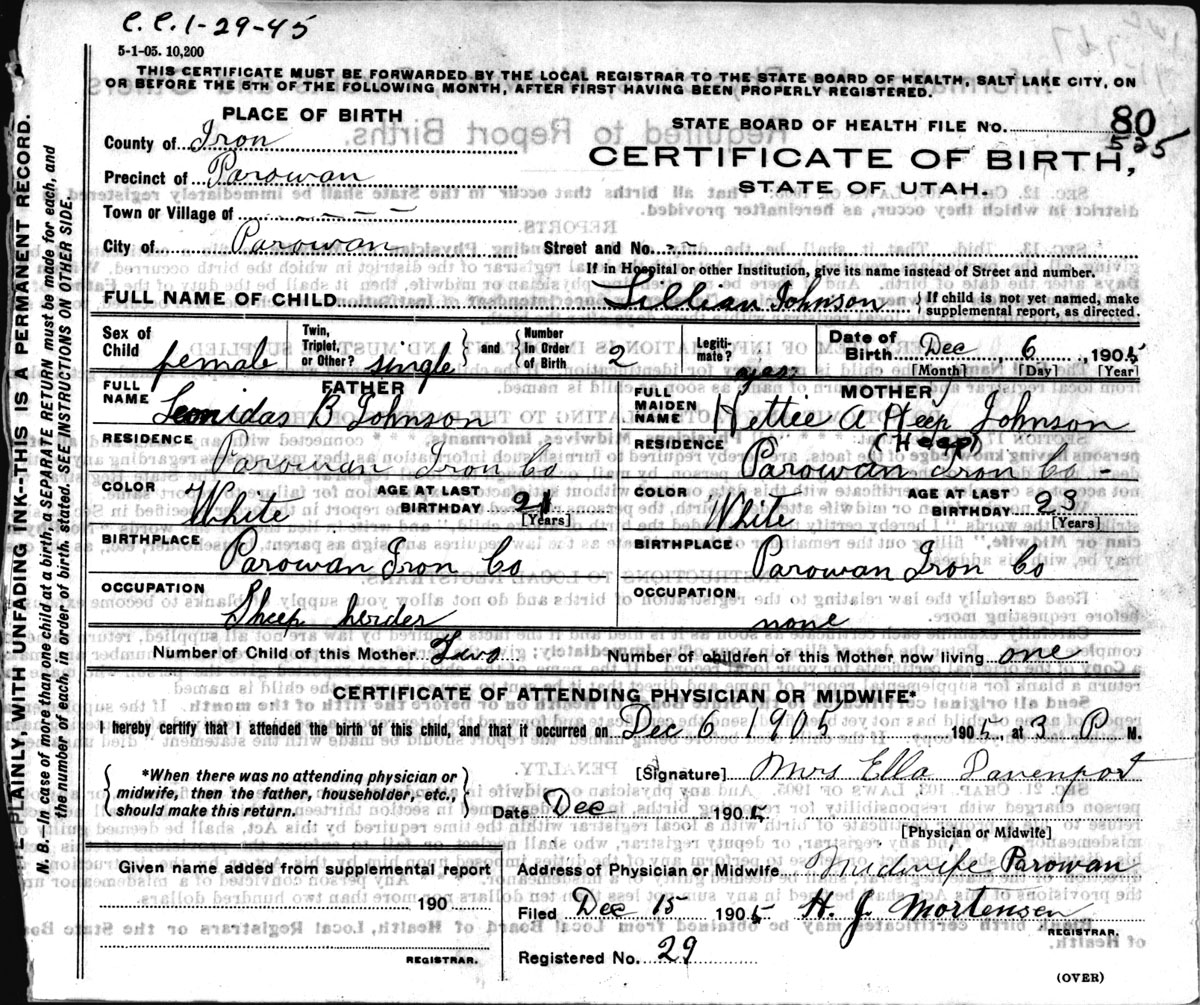 C.C. 1-29-45
5-1-05. 10,200
THIS CERTIFICATE MUST BE FORWARDED BY THE LOCAL REGISTRAR TO THE STATE BOARD OF HEALTH, SALT LAKE CITY, ON
OR BEFORE THE 5TH OF THE FOLLOWING MONTH, AFTER FIRST HAVING BEEN PROPERLY REGISTERED.
PLACE OF BIRTH
County of Iron
Precinct of Parowan
Town or Village of
City of Parowan
STATE BOARD OF HEALTH FILE No. 80
525
CERTIFICATE OF BIRTH,
STATE OF UTAH.
Street and No.
If in Hospital or other Institution, give its name instead of Street and number.
FULL NAME OF CHILD Lillian Johnson { If child is not yet named, make supplemental report, as directed.
Sex of Child female Twin, Triplet, or Other? single } and { Number in Order of Birth 2 Legiti-mate? yes Date of Birth Dec 6, 1905
[Month] [Day] [Year]
FATHER
FULL NAME Leonidas B Johnson
RESIDENCE Parowan Iron Co
COLOR White AGE AT LAST BIRTHDAY 24 [Years]
BIRTHPLACE Parowan Iron Co
OCCUPATION Sheep herder
MOTHER
FULL MAIDEN NAME Nettie A Heep Johnson
(Heap)
RESIDENCE Parowan Iron Co -
COLOR White AGE AT LAST BIRTHDAY 23 [Years]
BIRTHPLACE Parowan Iron Co
OCCUPATION none
Number of Child of this Mother Two Number of children of this Mother now living one
CERTIFICATE OF ATTENDING PHYSICIAN OR MIDWIFE*
I hereby certify that I attended the birth of this child, and that it occurred on Dec 6 1905 1905, at 3 P M.
{ *When there was no attending physician or midwife, then the father, householder, etc., should make this return. }
[Signature] Mrs Ella Davenport
Date Dec 1905
[Physician or Midwife]
Given name added from supplemental report
190
REGISTRAR.
Address of Physician or Midwife Midwife Parowan
Filed Dec 15 1905 H. J. Mortensen
REGISTRAR.
Registered No. 29
(OVER)
E PLAINLY, WITH UNFADING INK--THIS IS A PERMANENT RECORD.
N. B.--In case of more than one child at a birth, a SEPARATE RETURN must be made for each, and
the number of each, in order of birth, stated. SEE INSTRUCTIONS ON OTHER SIDE.